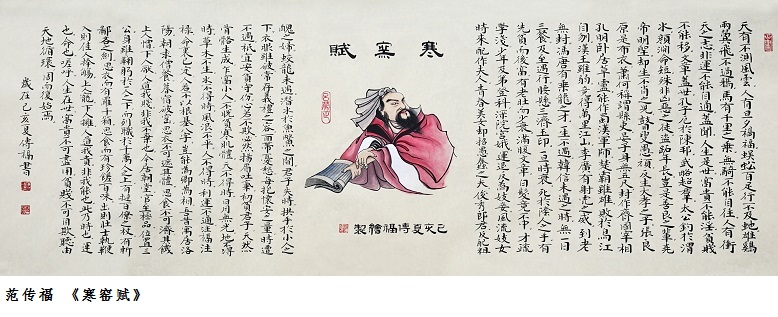 天有不測風雲人有旦夕禍福蜈蚣百足行不及蛇雄鷄
兩翼飛不過鴉馬有千里之乘無騎不能自往人有衝
天之志非運不能自通蓋聞人生在世富貴不能淫貧賤
不能移文章蓋世孔子厄於陳邦武略超羣太公釣於渭
水顏淵命短殊非凶惡之徒盜跖年長豈是善良之輩堯
帝明聖却生不肖之兒瞽叟愚頑反生大孝之子張良
原是布衣蕭何稱謂縣吏晏子身無五尺封作齊國宰相
孔明卧居草廬能作蜀漢軍師楚霸雖雄敗於烏江
自刎漢王雖弱竟得萬里江山李廣有射虎之威到老
無封馮唐有乘龍之才一生不遇韓信未遇之時無一日
三餐及至遇行腰懸三齊玉印一旦時衰死於陰人之手有
先貧而後富有老壯而少衰滿腹文章白髮竟不中才疏
學淺少年及第登科深院宮娥運退反為妓妾風流妓女
時來配作夫人青春美女却招愚蠢之夫俊秀郎君反配粗
寒窯賦
己亥夏傳福繪製
醜之婦蛟龍未遇潛水於魚鱉之間君子失時拱手於小人之
下衣服雖破常存儀禮之容面帶憂愁每抱懷安之量時遭
不遇祇宜安貧守份心若不欺必然揚眉吐氣初貧君子天然
骨骼生成乍富小人不脫貧寒肌體天不得時日月無光地不得
時草木不生水不得時風浪不平人不得時利運不通注福注
祿命裏已定人若不以根基八字豈能為卿為相吾昔寓居洛
陽朝求僧餐暮宿破窯思衣不可遮其體思食不可濟其饑
上人憎下人厭人道我賤非我不棄也今居朝堂官至極品位置三
公身雖鞠躬於一人之下而列職于千萬人之上有撻百僚之杖有斬
鄙吝之劍思衣而有羅錦千箱思食而有珍饈百味出則壯士執鞭
入則佳人捧觴上人寵下人擁人道我貴非我能也此乃時也運
也命也嗟呼人生在世富貴不可盡用貧賤不可自欺聽由
天地循環周而復始焉
歲在己亥夏傳福書
范传福 《寒窑赋》